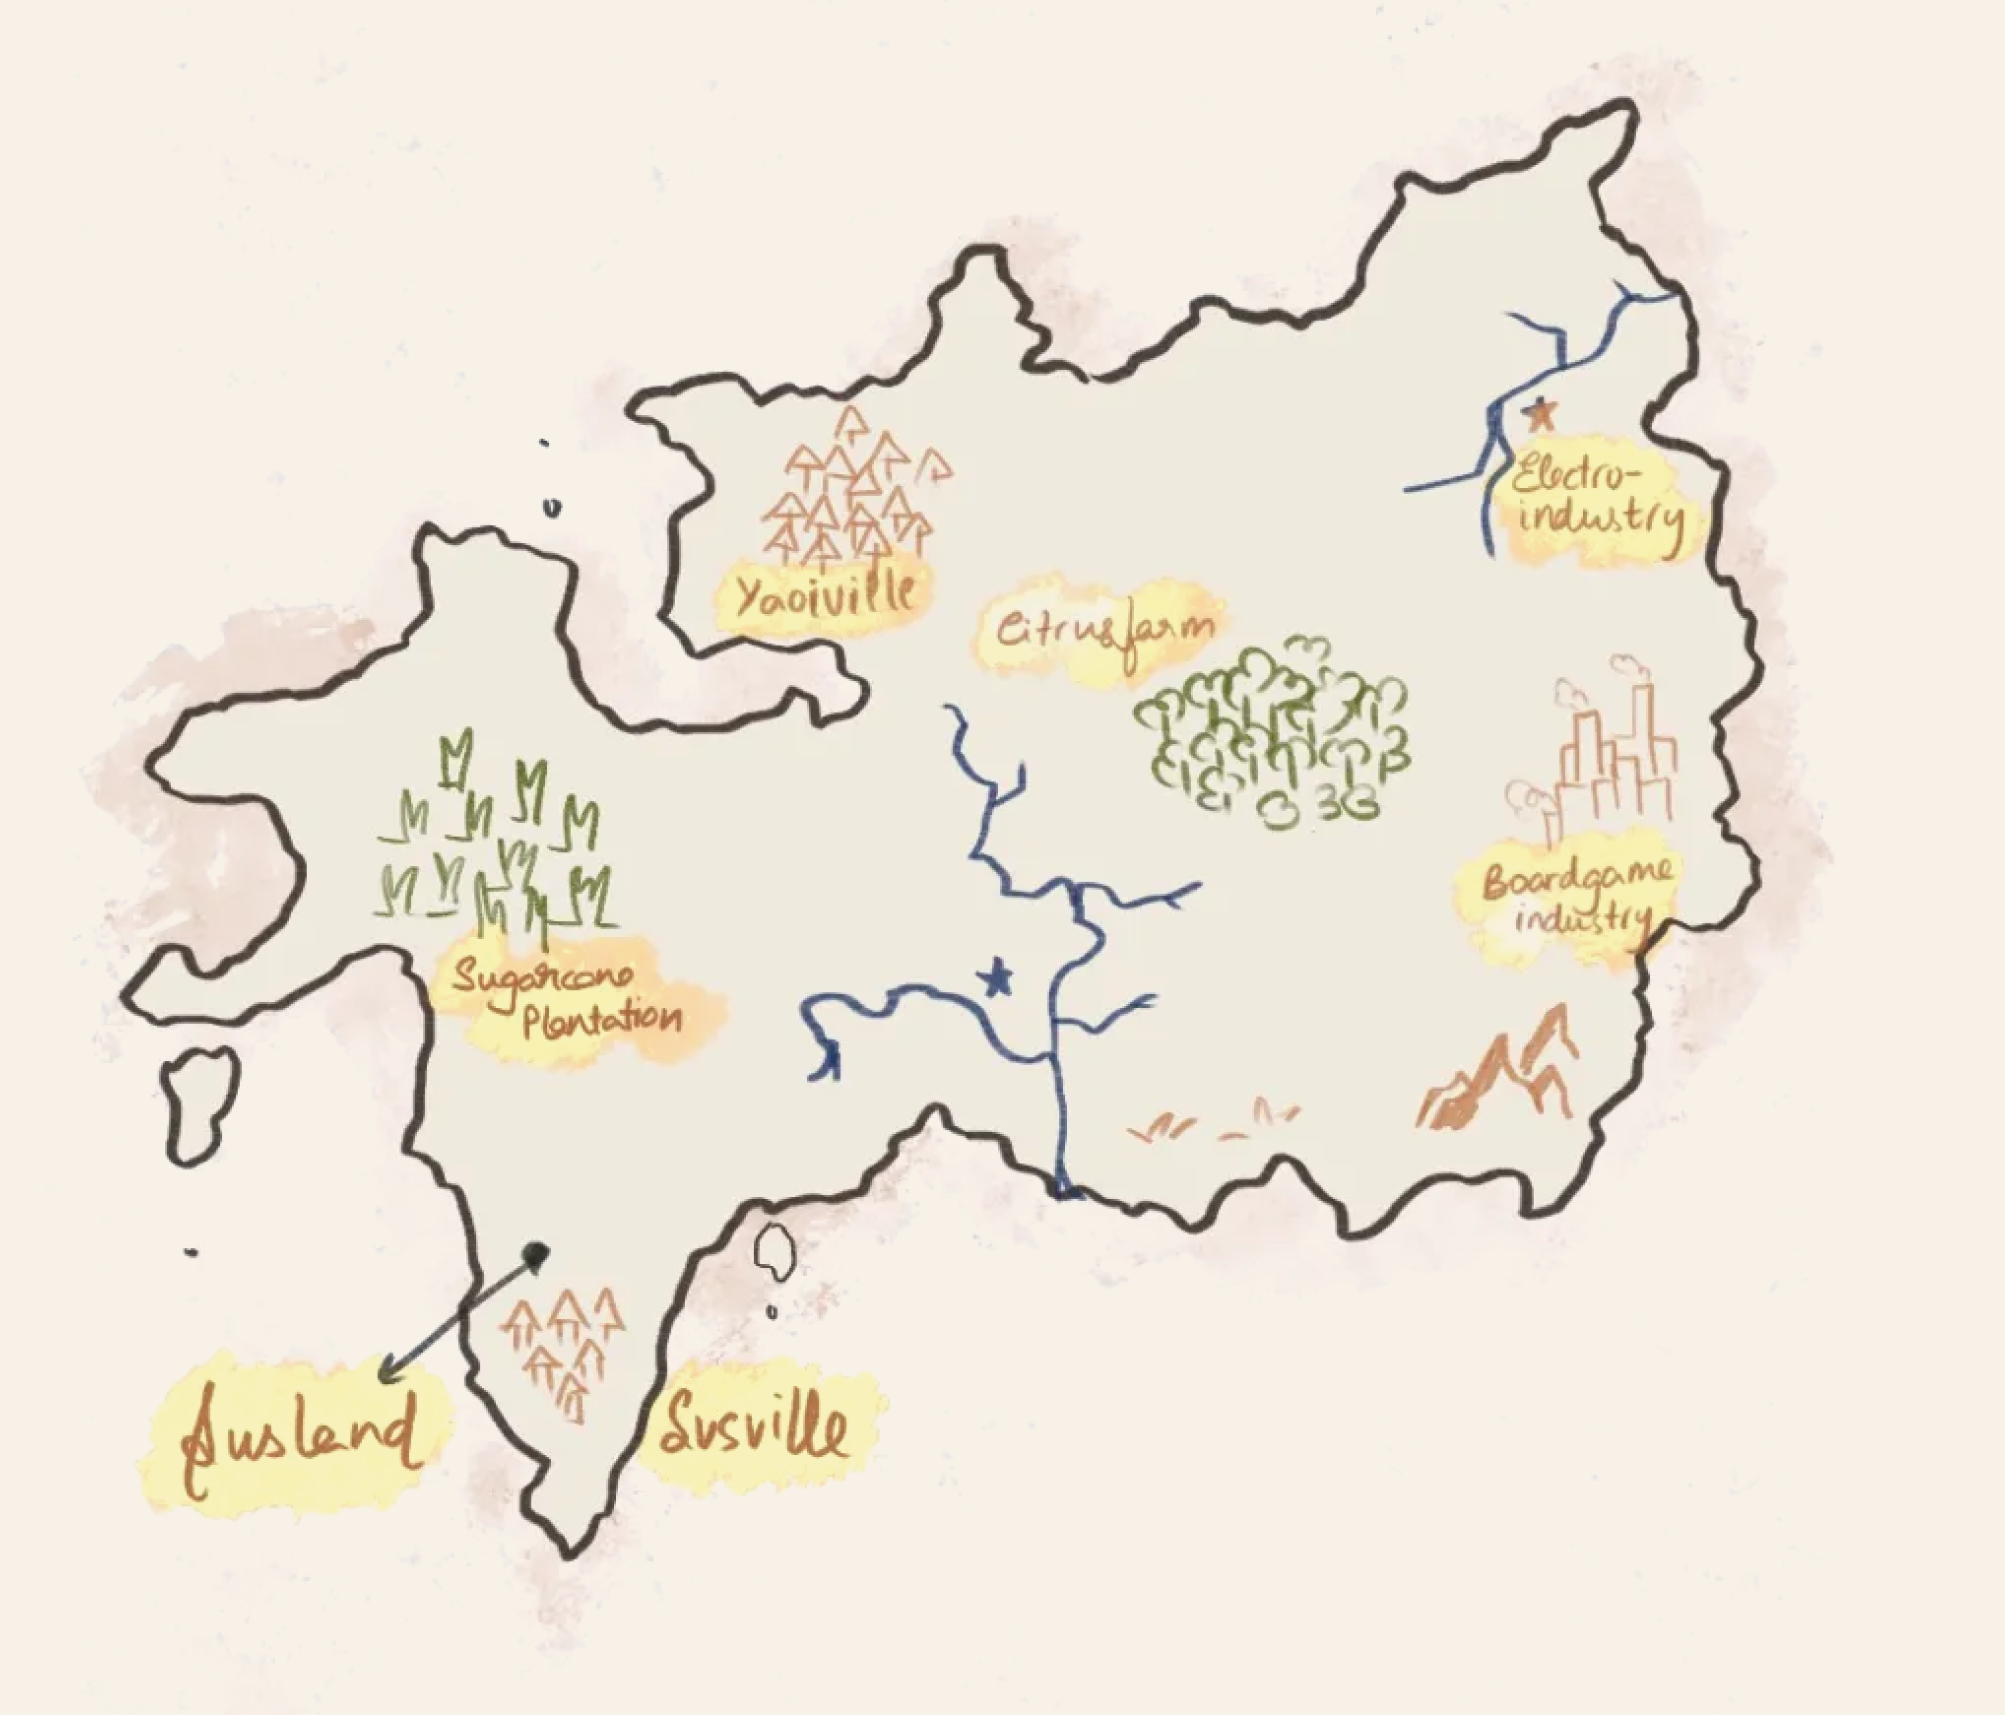 Electro-
industry
Yaoiville
Citrusfarm
Boardgame
industry
Sugarcane
Plantation
Susland
Susville